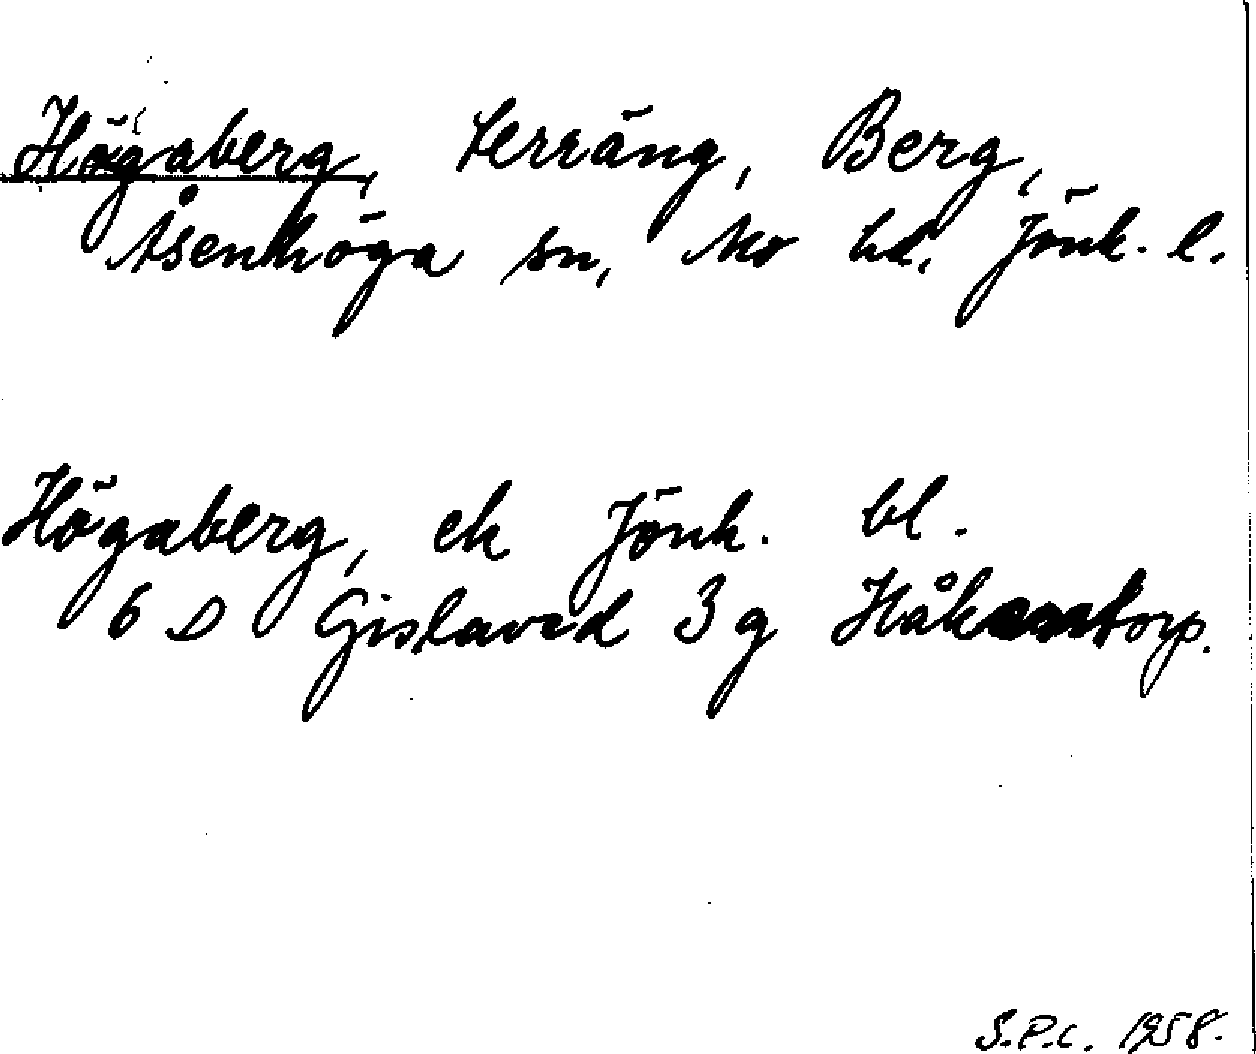 Högaberg, terräng, Berg,
Åsenhöga sn, Mo hd. Jönk. l.
Högaberg, ek Jönk. bl.
6 D Gislaved 3 g Håkentorp.
S.P.C. 1958.